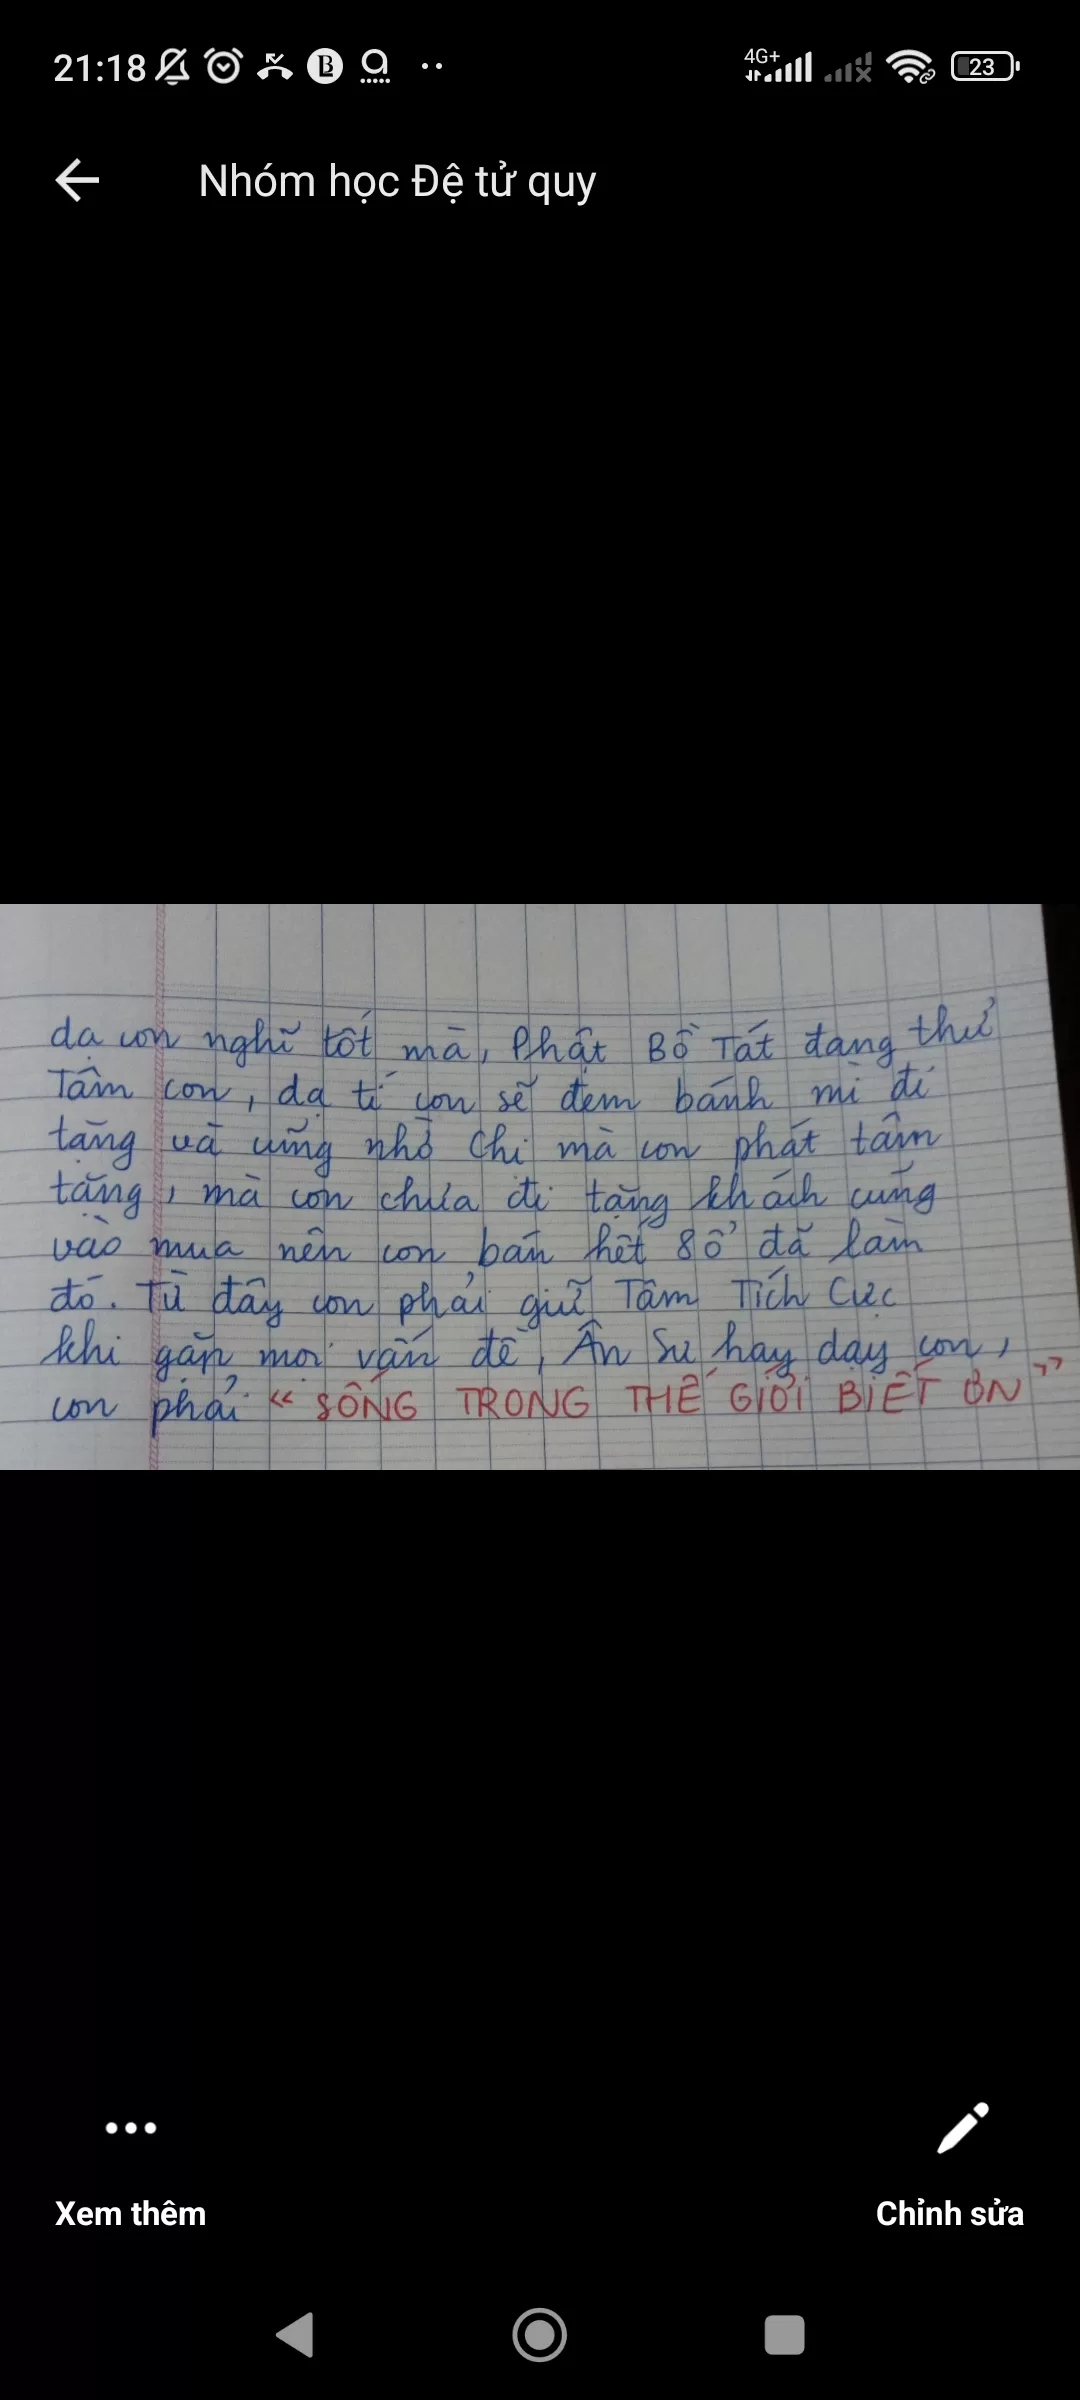 21:18
4G+
23
Nhóm học Đệ tử quy
dạ con nghĩ tốt mà, Phật Bồ Tát đang thử
Tâm con, dạ tí con sẽ đem bánh mì đi
tặng và cũng nhờ Chị mà con phát tâm
tặng, mà con chưa đi tặng khách cũng
vào mua nên con bán hết 8 ổ đã làm
đó. Từ đây con phải giữ Tâm Tích Cực
khi gặp mọi vấn đề, Ân Sư hay dạy con,
con phải "SỐNG TRONG THẾ GIỚI BIẾT ƠN"
Xem thêm
Chỉnh sửa